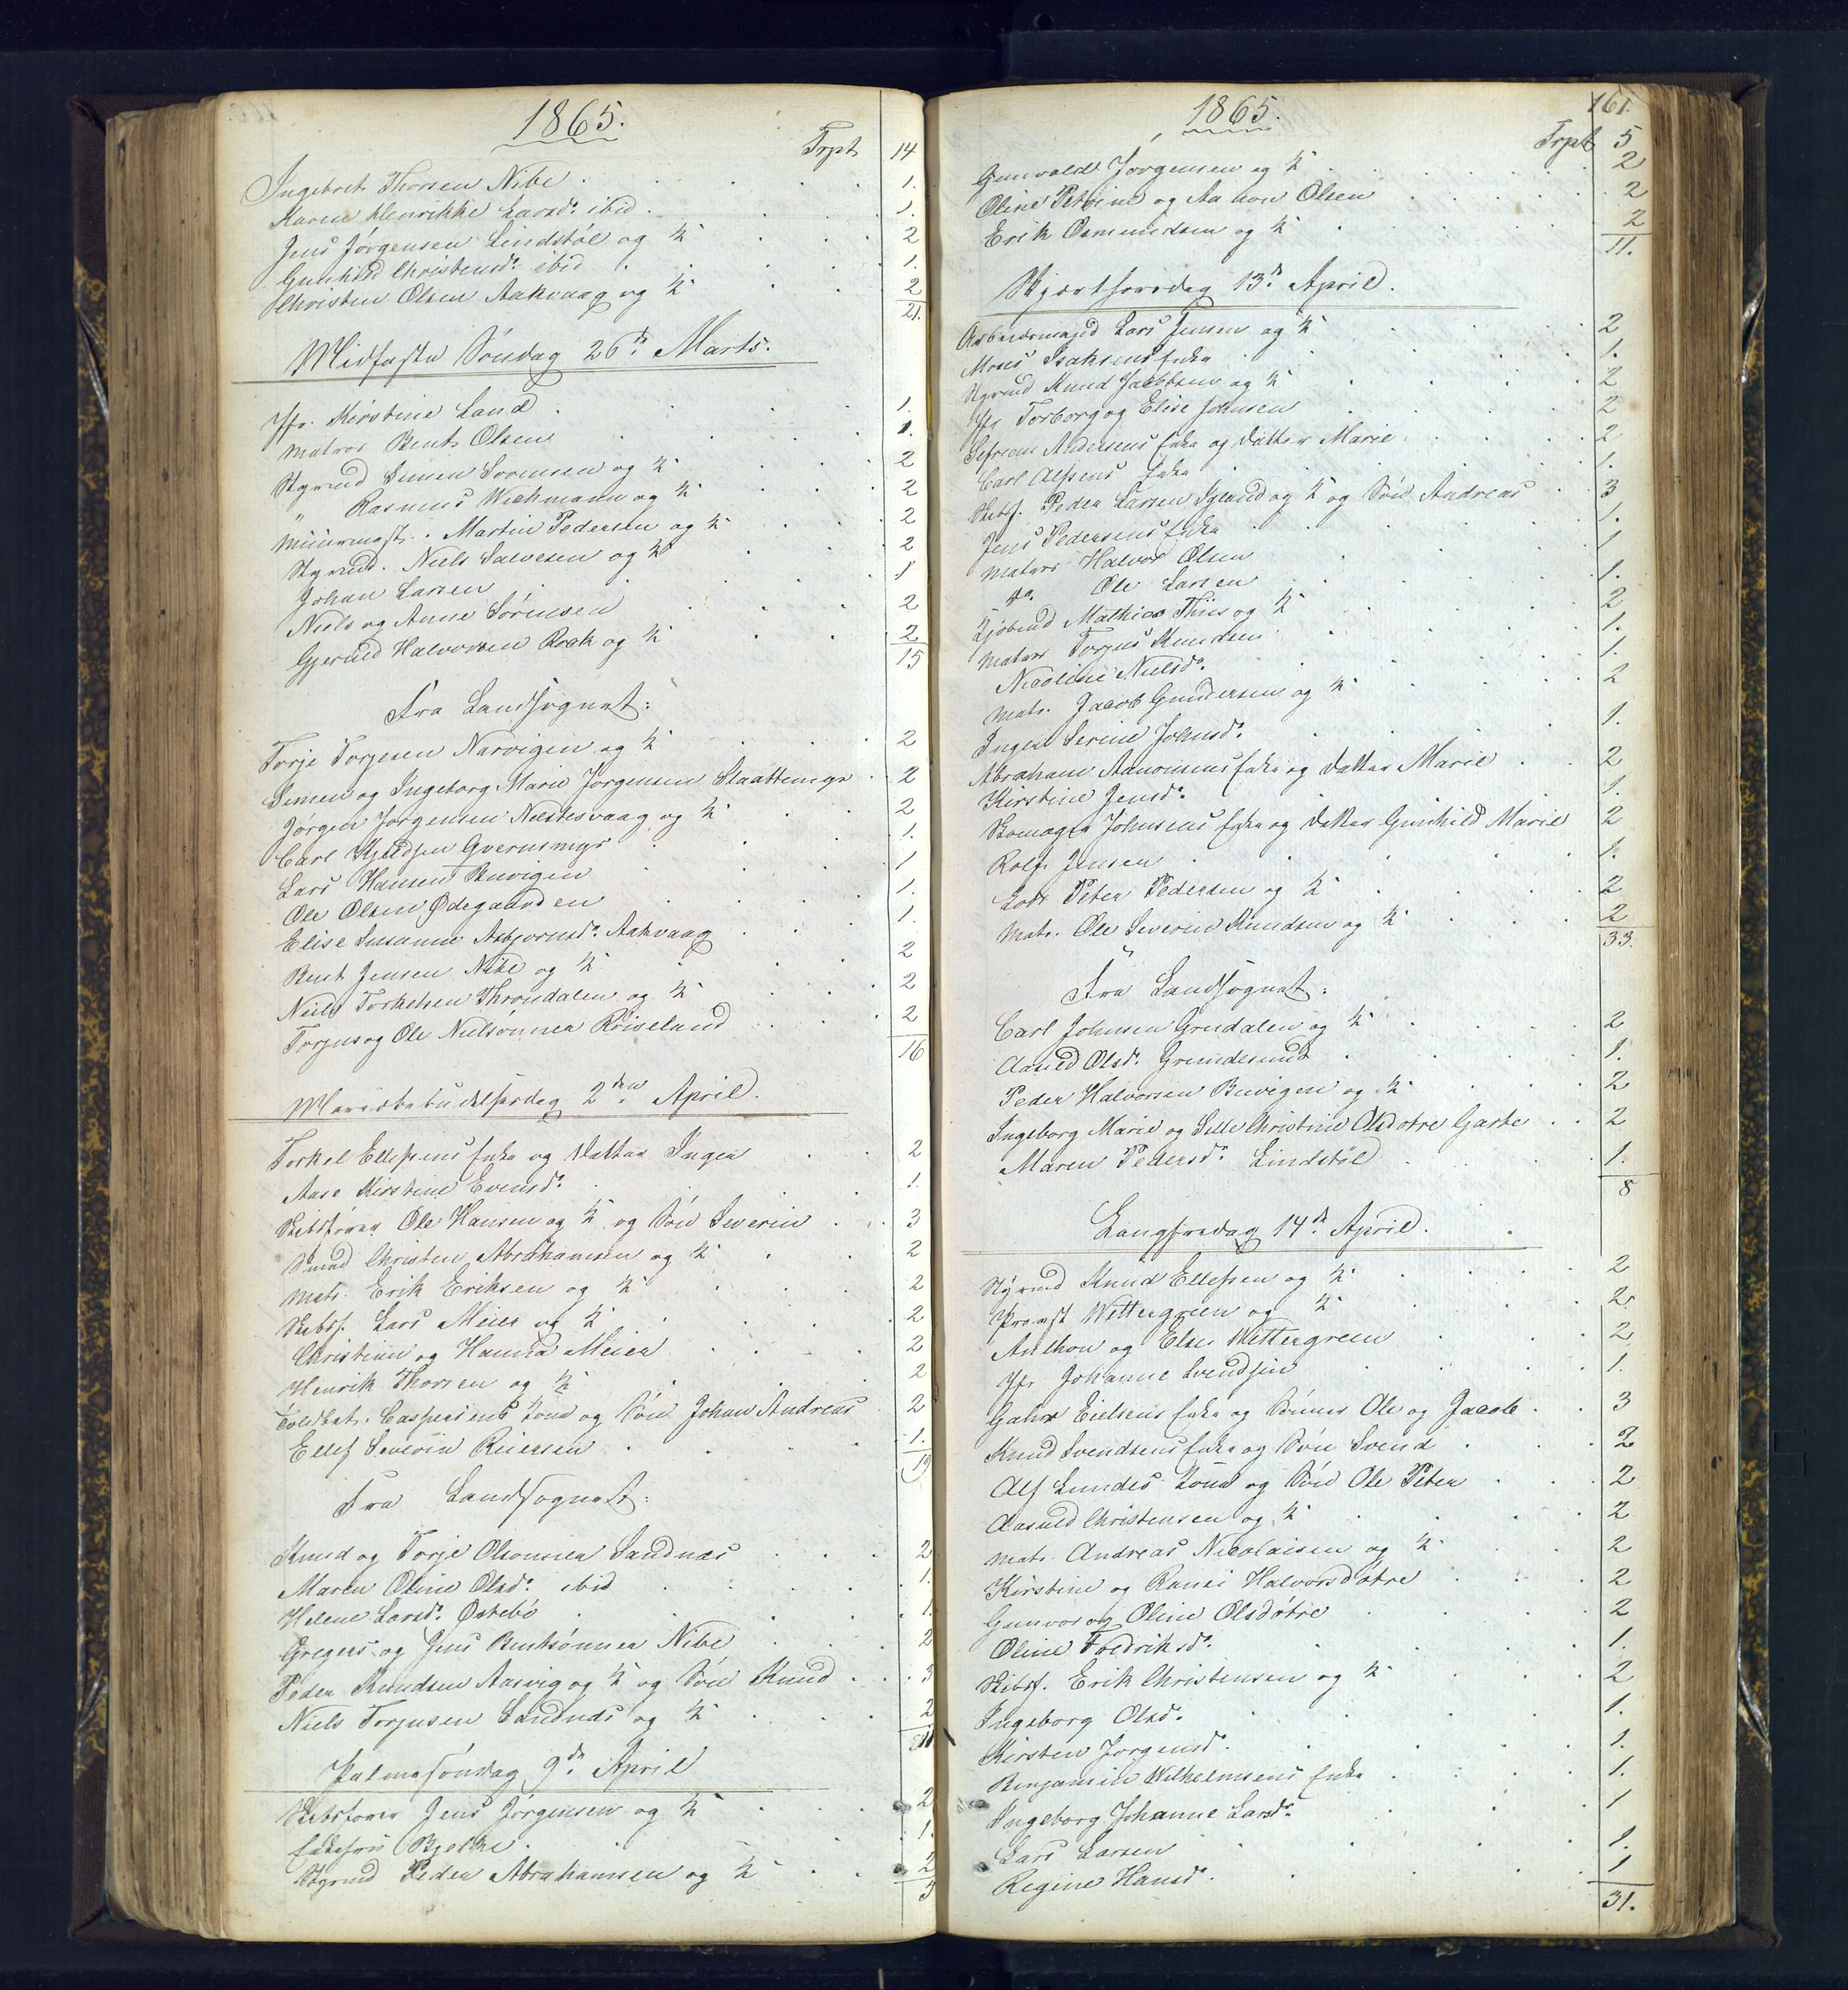 1865.
Trpt 14
Ingebret Thorsen Nibe 1.
Karen Henrikke Larsd. ibid 1.
Jens Jörgensen Lindstöl og K. 2
Gunhild Christensd. ibid 1.
Christen Olsen Aakvaag og K. 2
21.
Midfaste Söndag 26de Marts.
Jfr. Kirstine Lund 1.
Matros Bent Olsen 1.
Styrmd Simen Sorensen og K. 2
" Rasmus Wichmann og K. 2
Muurmstr. Martin Pedersen og K. 2
Styrmd. Niels Salvesen og K. 2
Johan Larsen 1
Niels og Anne Sörensen 2
Gjerud Halvorsen Rock og K. 2
15
Fra Landsognet:
Torje Torjesen Narvigen og K. 2
Simen og Ingeborg Marie Jörgensen Slaattemyr 2
Jörgen Jörgensen Nestesvaag og K. 2
Carl Kjeldsen Gvernmyr 1.
Lars Hansen Buvigen 1
Ole Olsen Ödegaarden 1.
Elise Susanne Asbjornsd. Aakvaag 1.
Bent Jensen Nibe og K. 2
Niels Torkelsen Throndalen og K. 2
Torjus og Ole Nielsönner Röiseland 2
16
Mariæbebudelsesdag 2den April.
Torkel Ellefsens Enke og Datter Inger 2
Aase Kirstine Evensd. 1.
Skibsförer Ole Hansen og K. og Sön Severin 3
Smed Christen Abrahamsen og K. 2
Matr. Erik Eriksen og K. 2
Skibsf. Lars Meier og K. 2
Christian og Hanna Meier 2
Henrik Thorsen og K. 2
Toldbet. Caspersens Kone og Sön Johan Andreas 2
Ellef Severin Reiersen 1.
19
Fra Landsognet:
Knud og Torje Olsönner Sandnæs 2
Maren Oline Olsd. ibid 1.
Helene Larsd. Östebö 1.
Gregers og Jens Bentsönner Nibe 2
Peder Knudsen Aasvig og K. og Sön Knud 3
Niels Torjusen Sandnæs og K. 2
11
Palmesöndag 9de April
Skibsforer Jens Jörgensen og K. 2
Enkefru Bjelke 1.
Styrmd Peder Abrahamsen og K. 2
5
1865.
161.
Trpt 5
Gunvald Jörgensen og K. 2
Oline Petrine og Aanon Olsen 2
Erik Osmundsen og K. 2
11.
Skjærthorsdag 13de April.
Arbeidsmand Lars Jensen og K. 2
Moses Isaksens Enke 1.
Styrmd Knud Jacobsen og K. 2
Jfr Torborg og Elise Johnsen 2
Sefrens Andersens Enke og Datter Marie 2
Carl Alfsens Enke 1.
Skibsf. Peder Larsen Igland og K. og Sön Andreas 3
Jens Pedersens Enke 1.
Matros Halvor Olsen 1
do. Ole Larsen 1.
Kjöbmd Mathias Thiis og K. 2
Matros Torjus Knudsen 1.
Nicoline Nielsd. 1.
Matr. Jacob Gundersen og K. 2
Inger Serine Johnsd. 1.
Abraham Aanonsens Enke og Datter Marie 2
Kirstine Jensd. 1.
Skomager Johnsens Enke og Datter Gunhild Marie 2
Rolf Jensen 1.
Lods Peter Pedersen og K. 2
Matr. Ole Severin Knudsen og K. 2
33.
Fra Landsognet:
Carl Johnsen Grudalen og K. 2
Aasild Olsd. Grundesund 1.
Peder Halvorsen Buvigen og K. 2
Ingeborg Marie og Sille Christine Olsdotre Garte 2
Maren Pedersd. Lindstöl 1.
8
Langfredag 14de April.
Styrmd Knud Ellefsen og K. 2
Provst Wettergreen og K. 2
Anthon og Else Wettergreen 2
Jfr Johanne Svendsen 1.
Gahr Eielsens Enke og Sönner Ole og Jacob 3
Knud Svendsens Enke og Sön Svend 2
Alf Lundes Kone og Sön Ole Peter 2
Aasuld Christensen og K. 2
Matr. Andreas Nicolaisen og K. 2
Kirstine og Randi Halvorsdötre 2
Gunvor og Oline Olsdötre 2
Oline Fredriksd. 1.
Skibsf. Erik Christensen og K. 2
Ingeborg Olsd. 1.
Kirsten Jorgensd. 1.
Benjamin Wilhelmsens Enke 1.
Ingeborg Johanne Larsd. 1
Lars Larsen 1.
Regine Hansd. 1
31.